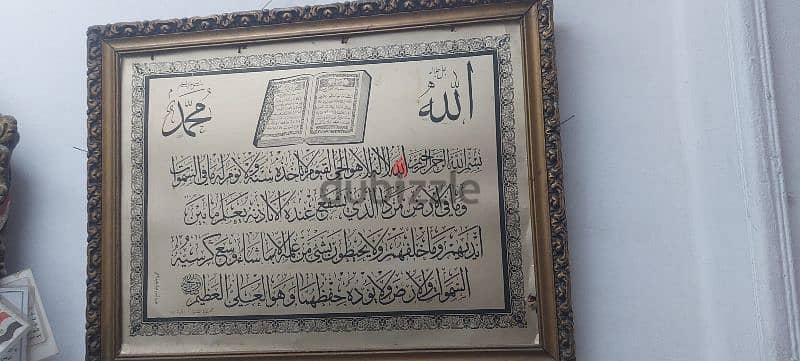 الله جل جلاله
محمد
بسم الله الرحمن الرحيم الله لا إله إلا هو الحي القيوم لا تأخذه سنة ولا نوم له ما في السموات
وما في الأرض من ذا الذي يشفع عنده إلا بإذنه يعلم ما بين
أيديهم وما خلفهم ولا يحيطون بشيء من علمه إلا بما شاء وسع كرسيه
السموات والأرض ولا يؤده حفظهما وهو العلي العظيم
dubizzle